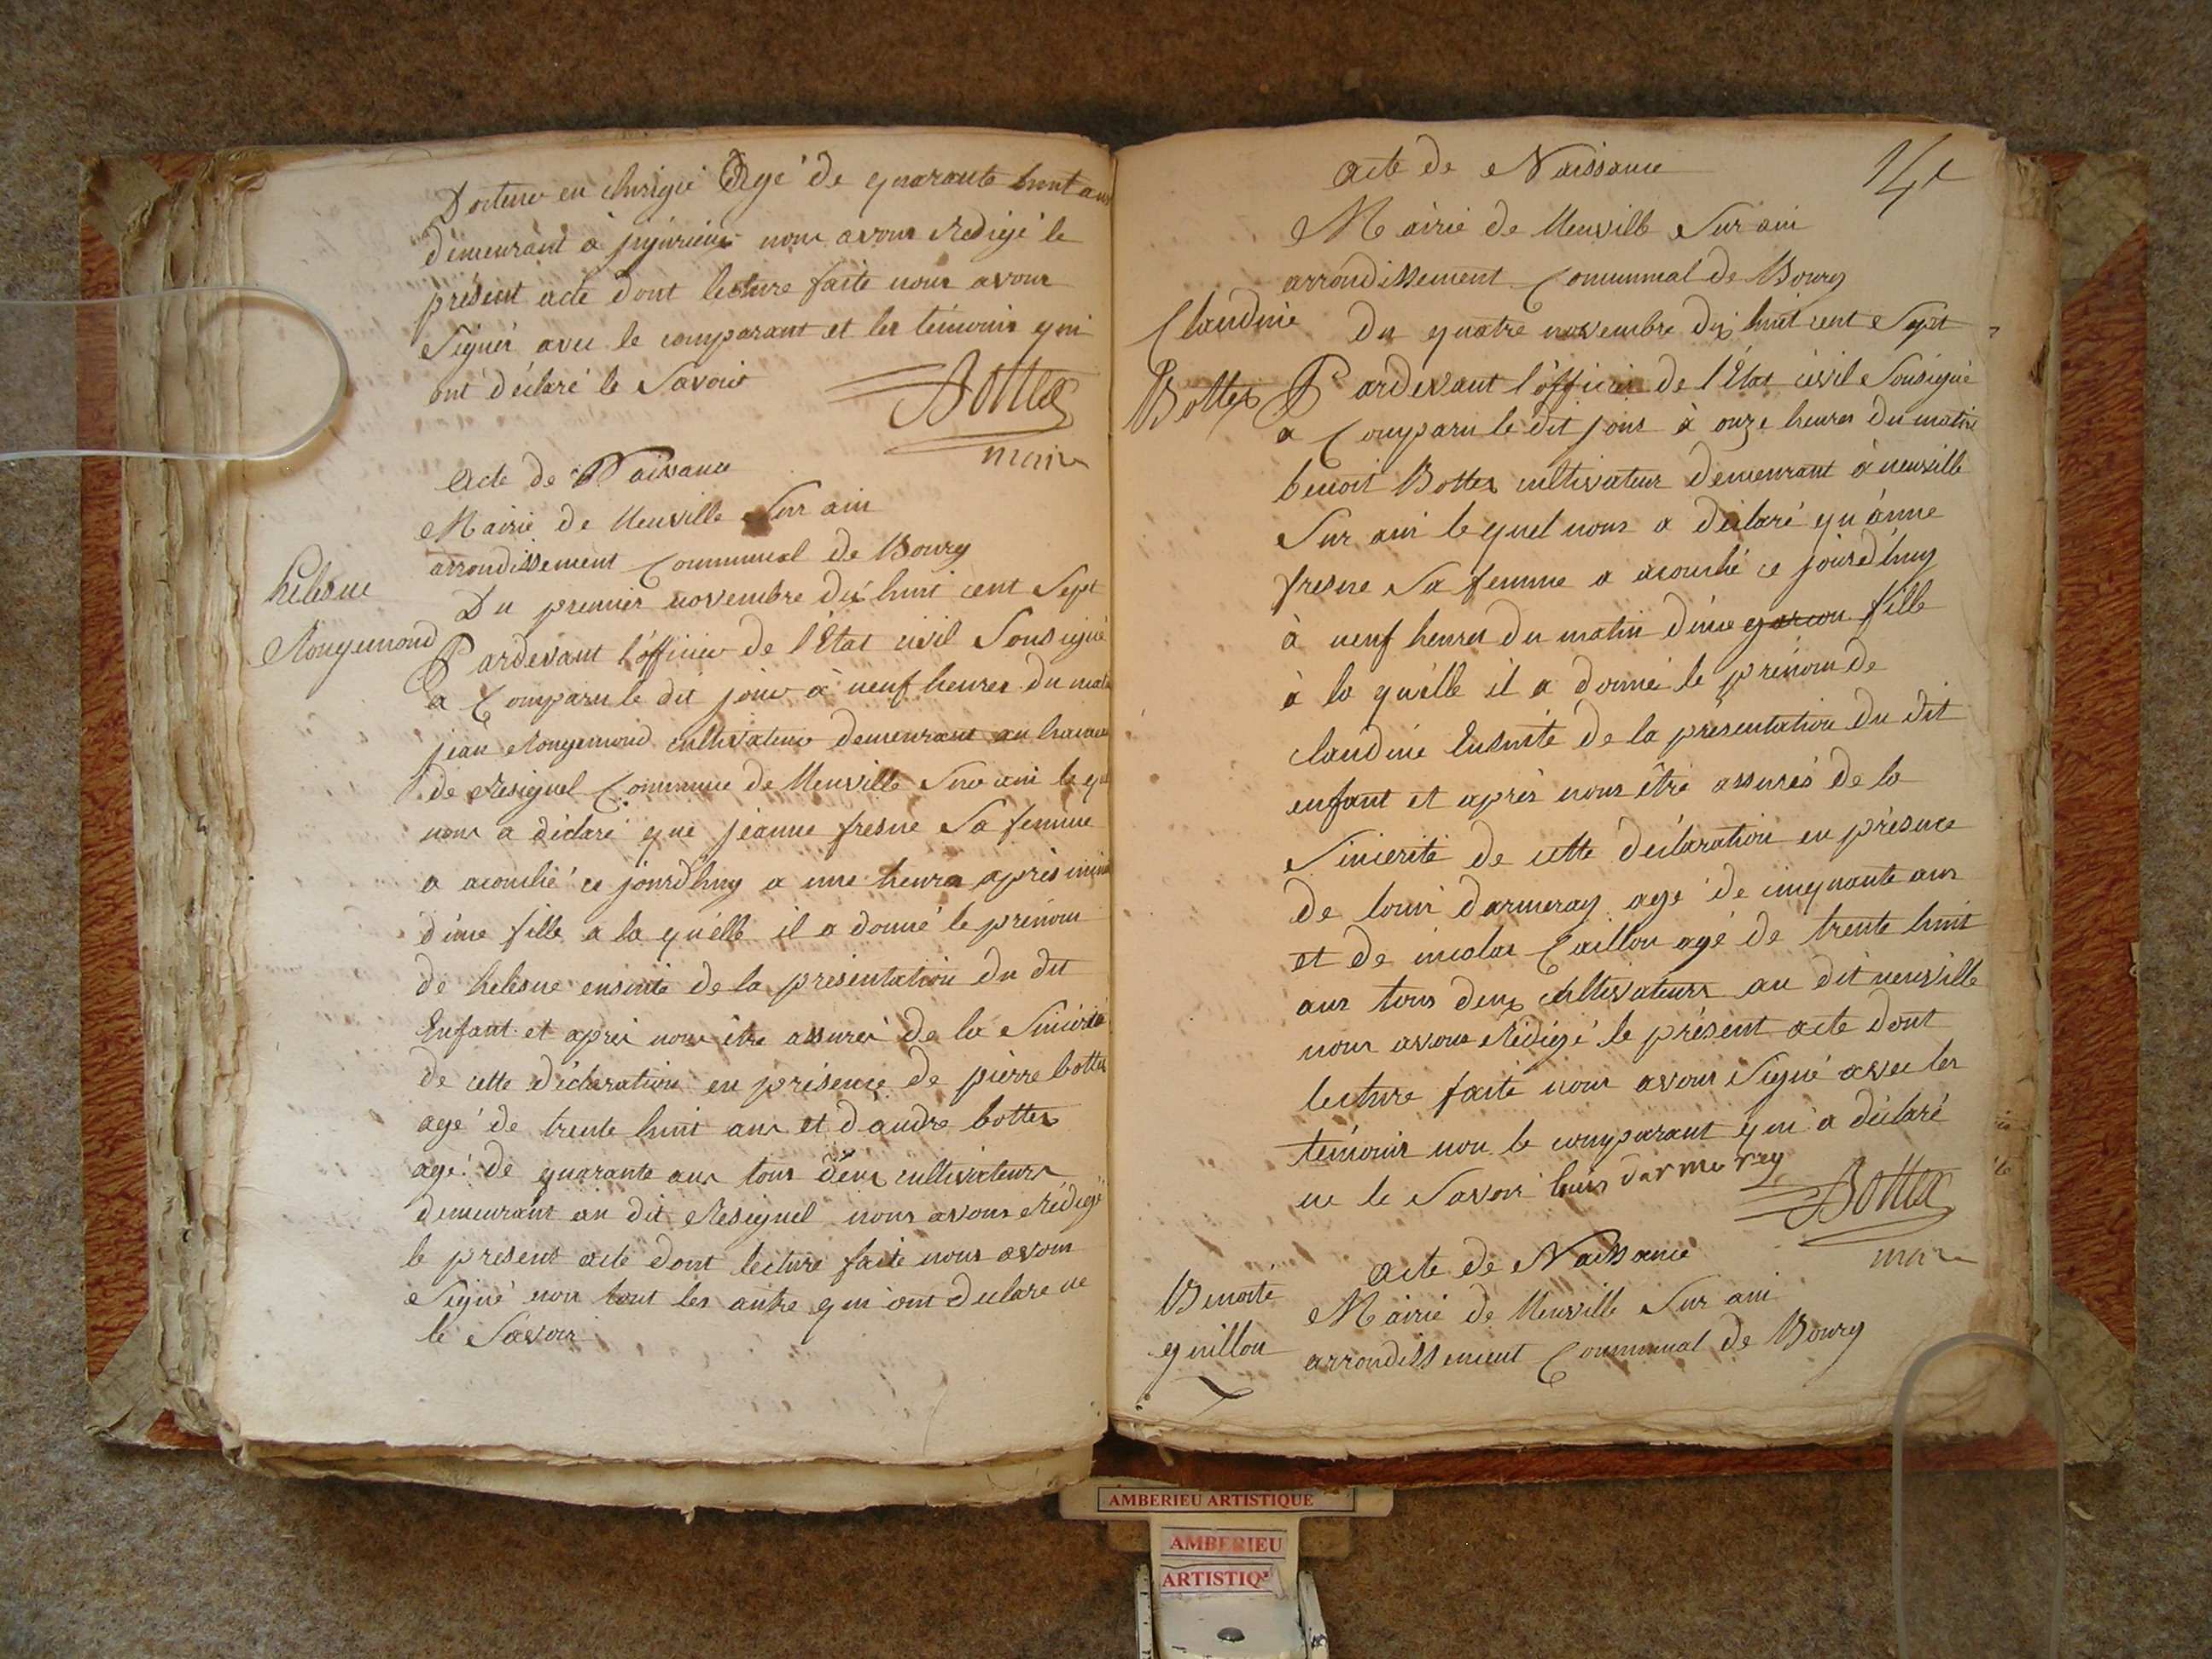 Docteur en chirugie Agé de quarante huit ans
demeurant à jujurieux nous avons Redigé le
présent acte dont lecture faite nous avons
Signés avec le comparant et les témoins qui
ont déclaré le Savoir
Bottex
maire
Acte de Naissance
Mairie de Neuville Sur ain
arrondissement Communal de Bourg
helesne
Rougemond
Du premier novembre dix huit cent Sept
Pardevant l'officier de l'État civil Sousigné
a Comparu le dit jour à neuf heures du matin
jean Rougemond cultivateur demeurant au hameau
de Resignel Commune de Neuville Sur ain le quel
nous a déclaré que jeanne fresne Sa femme
a acouché ce jourd'huy a une heure après minuit
d'une fille a la quélle il a donné le prénom
de helesne ensuite de la présentation du dit
Enfant et après nous être assurés de la Sincérité
de cette déclaration en présence de pierre bottex
agé de trente huit ans et d'andre bottex
agé de quarante ans tous deux cultivateurs
demeurant au dit Resignel nous avons Rédigé
le présent acte dont lecture faite nous avons
Signé non tout les autre qui ont declare ne
le Savoir
Acte de Naissance
Mairie de Neuville Sur ain
arrondissement Communal de Bourg
Claudine
Bottex
du quatre novembre dix huit cent Sept
Pardevant l'officier de l'État civil Sousigné
a Comparu le dit jour à onze heures du matin
benoit Bottex cultivateur demeurant à neuville
Sur ain le quel nous a déclaré qu'anne
fresne Sa femme a acouché ce jourd'huy
à neuf heures du matin d'une garcon fille
à la quélle il a donné le prénom de
claudine Ensuite de la présentation du dit
enfant et après nous être assurés de la
Sincerité de cette déclaration en présence
de louis darmeray agé de cinquante ans
et de nicolas Caillou agé de trente huit
ans tous deux cultivateurs au dit neuville
nous avons Rédigé le présent acte dont
lecture faite nous avons Signé avec les
témoins non le comparant qui a déclaré
ne le Savoir louis darmerey
Bottex
maire
Acte de Naissance
Benoite
guillou
Mairie de Neuville Sur ain
arrondissement Communal de Bourg
AMBERIEU ARTISTIQUE
AMBERIEU
ARTISTIQ